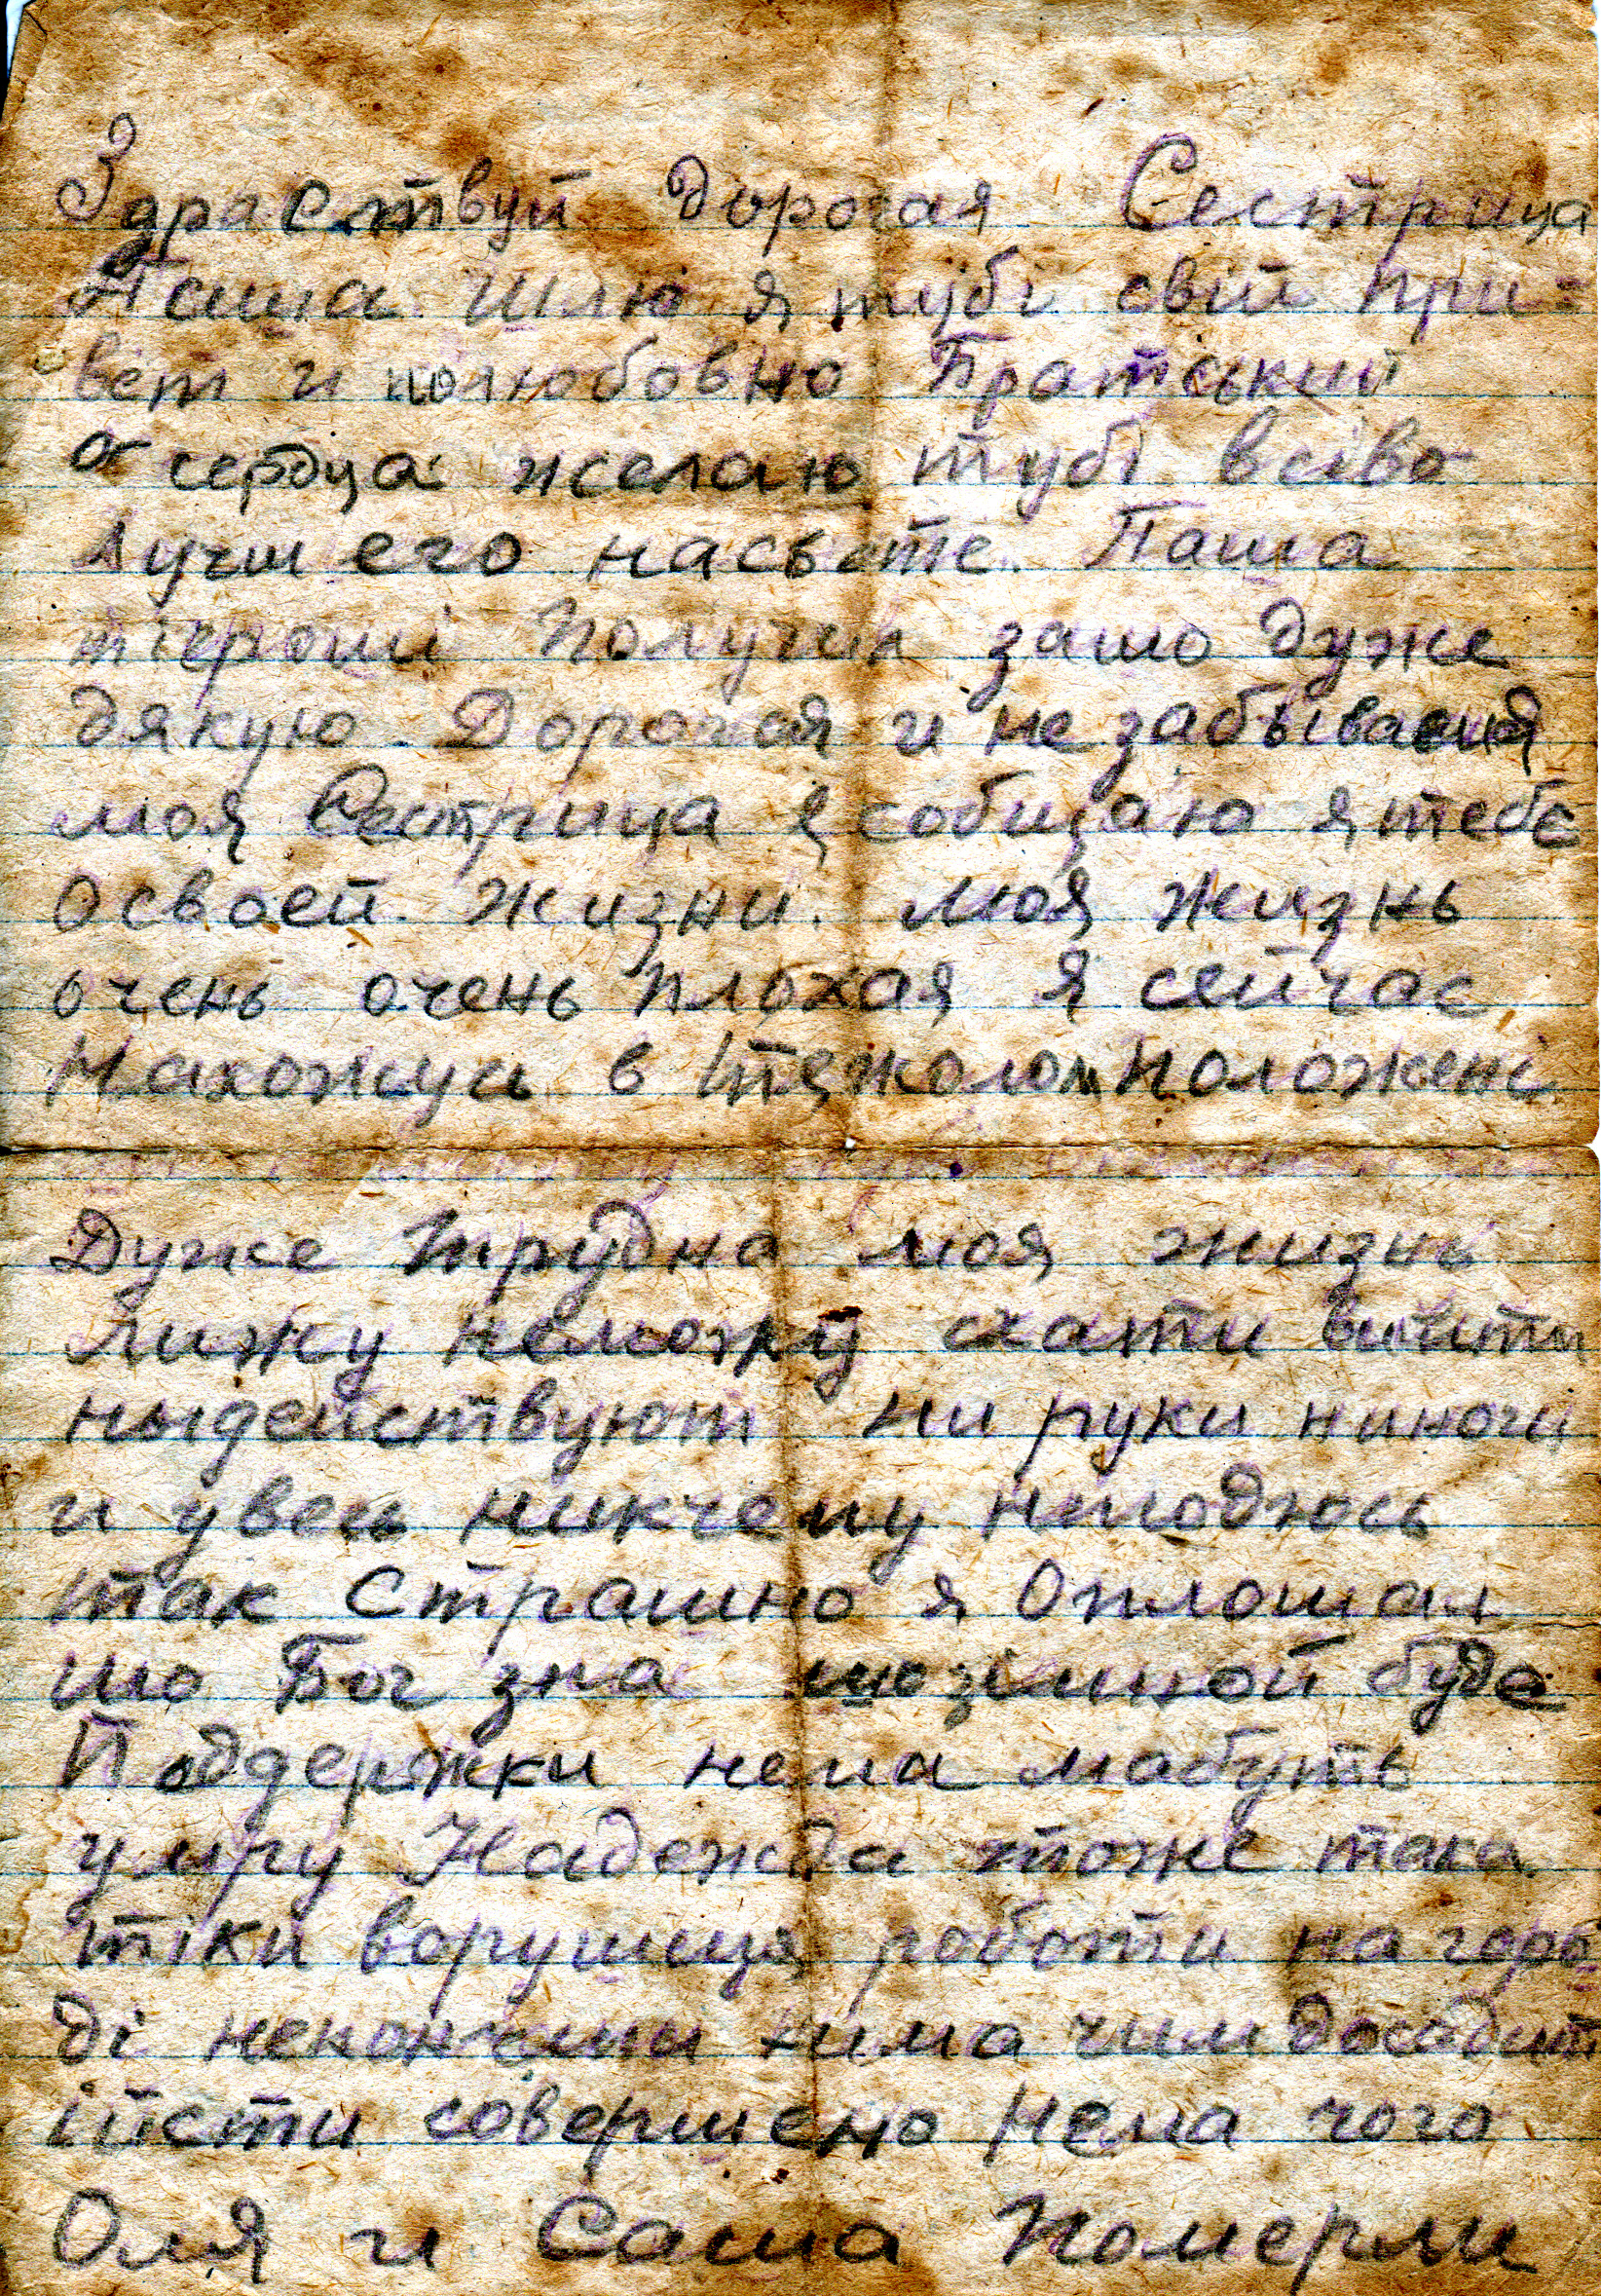 Здраствуй дорогая Сестрица
Паша Шлю я тубі свій при=
вет и полюбовно Братський
от сердца желаю тубі всіво
Лучшего насвете. Паша
тігроші Получил зашо дуже
дякую. Дорогая и не забываемая
моя Сестрица я собищаю я тебе
освоей жизни. моя жизнь
очень очень плохая я сейчас
Нахожусь в тяжолом положені
Дуже трудна моя жизнь
Лижу неможу схати вийти
ныдействуют ни руки ниноги
и увесь никчему нигодюсь
так Страшно я Оплошал
шо Бог зна шозімной буде
Поддержки нема мабуть
умру Надежда тоже така
тіки ворушиця роботи на горо
ді некончили нима чим досадит
ійсти совершено нема чого
Оля и Саша Померли